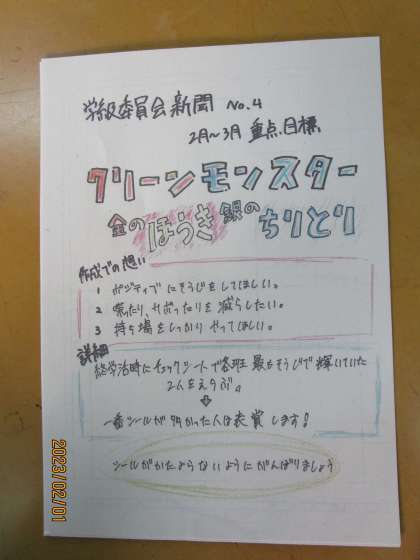 学級委員会新聞 No.4
2月〜3月 重点目標
クリーンモンスター
金のほうき 銀のちりとり
作成での想い
1 ポジティブにそうじをしてほしい。
2 喋ったり、サボったりを減らしたい。
3 持ち場をしっかりやってほしい。
詳細
終学活時にチェックシートで各班 最もそうじで輝いていた
2人をえらぶ。
↓
一番シールが多かった人は表賞します!
シールがかたよらないようにがんばりましょう
2023/02/01